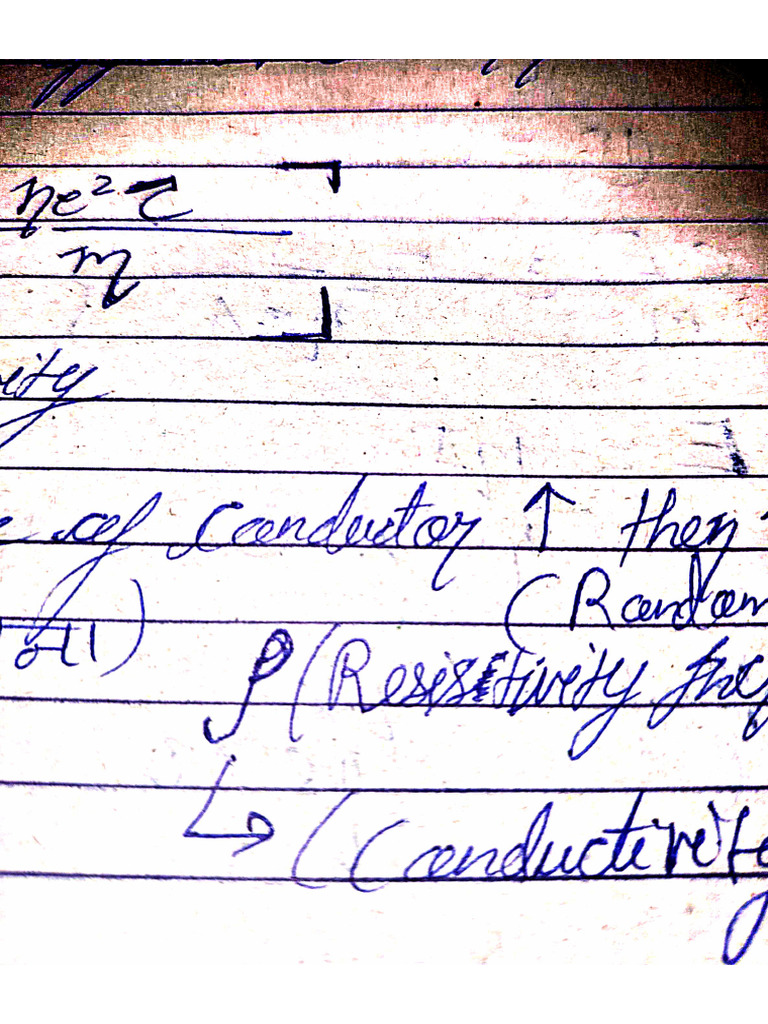 ne²τ
m
ity
of conductor ↑ then
(Random
ρ (Resistivity
↳ (Conductivity